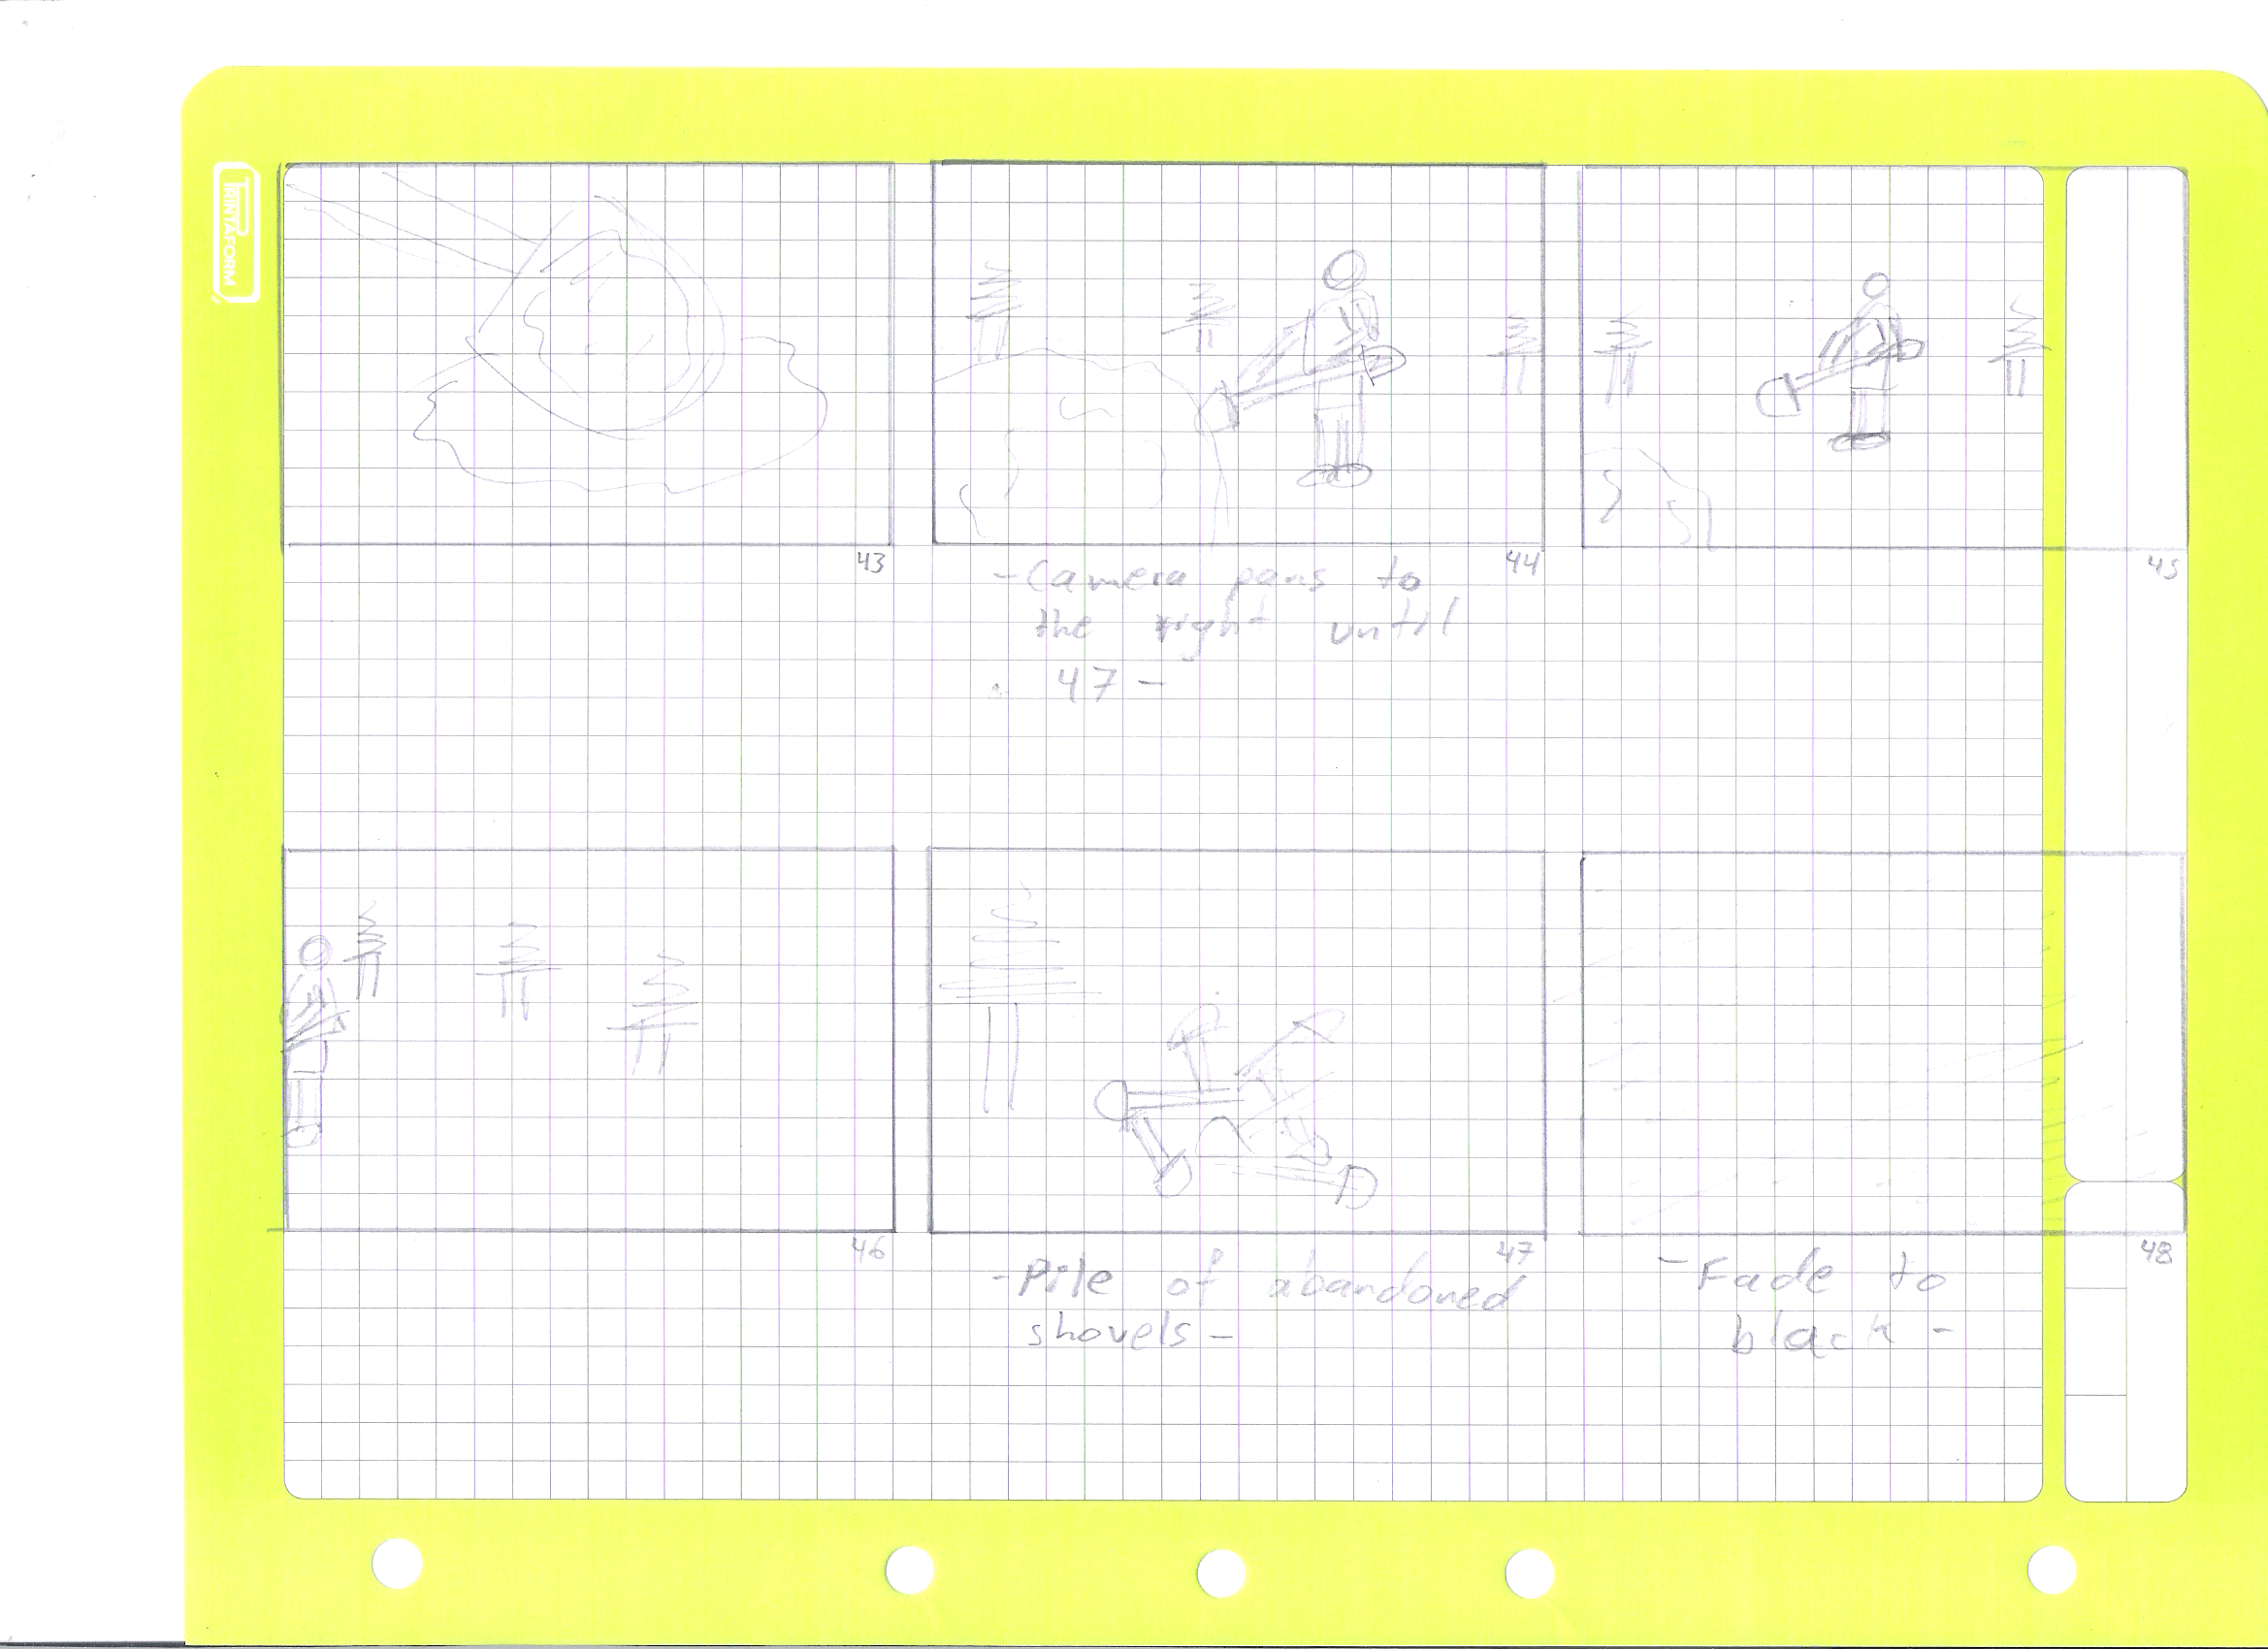 PRINTAFORM
43
44
45
- Camera pans to
the right until
47 -
46
47
48
- Pile of abandoned
shovels -
- Fade to
black -